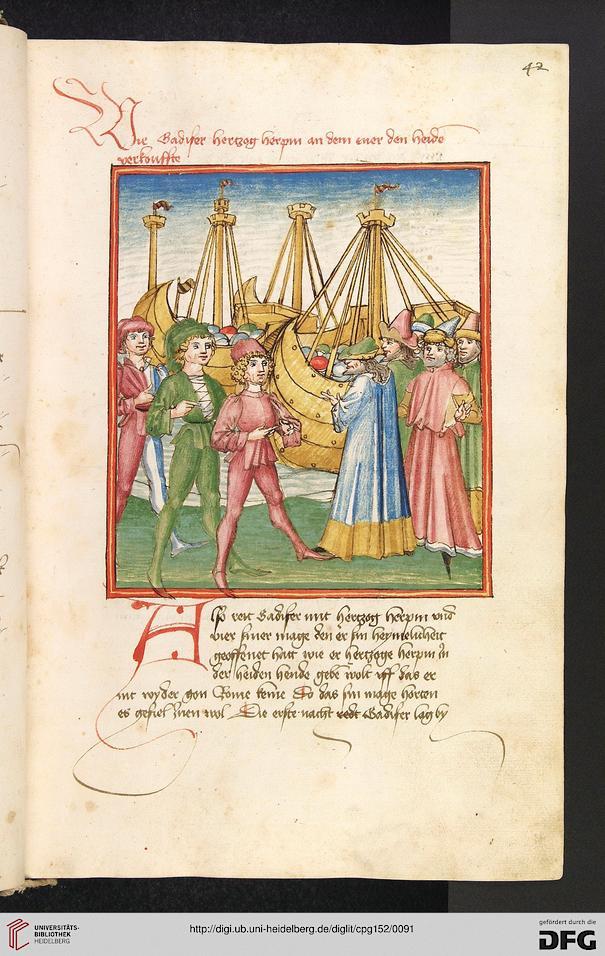 42
Wie Gadiser hertzog herpin an dem mer den heiden
verkouffte
Also reit Gadiser mit hertzog herpin vnd
vier siner mage den er sin heymelicheit
geoffenet hatt wie er hertzoge herpin jn
der heiden hende geben wolt vff das er
nit wyder gon Rome keme Do das sin mage horten
es gefiel jnen wol Die erste nacht redt Gadiser lag by
UNIVERSITÄTS-
BIBLIOTHEK
HEIDELBERG
http://digi.ub.uni-heidelberg.de/diglit/cpg152/0091
gefördert durch die
DFG